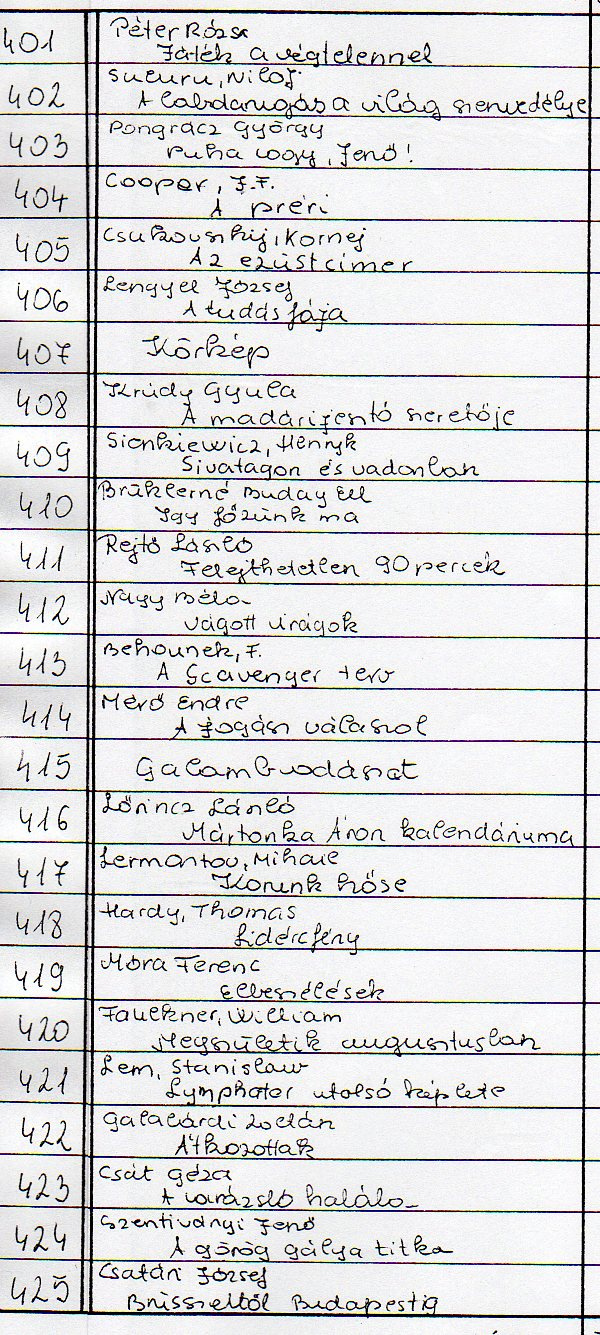 401 Péter Rózsa
Játék a végtelennel
402 Sucuru, Niloj
A labdarúgás a világ szenvedélye
403 Pongrácz György
Puha vogy, Jenő!
404 Cooper, J.F.
A préri
405 Csukovszkij, Kornej
Az ezüstcímer
406 Lengyel József
A tudás fája
407 Körkép
408 Krúdy Gyula
A madárijesztő szeretője
409 Sienkiewicz, Henryk
Sivatagon és vadonban
410 Brüklerné Buday Ell
Igy főzünk ma
411 Rejtő László
Felejthetetlen 90 percek
412 Nagy Béla
Vágott virágok
413 Behounek, F.
A Scavenger terv
414 Mérő Endre
A fogász válaszol
415 Galambvadászat
416 Lőrincz László
Mártonka Áron kalendáriuma
417 Lermontov, Mihail
Korunk hőse
418 Hardy, Thomas
Lidércfény
419 Móra Ferenc
Elbeszélések
420 Faulkner, William
Megszületik augusztusban
421 Lem, Stanislaw
Lymphater utolsó képlete
422 Galabárdi Zoltán
Átkozottak
423 Csát Géza
A varázsló halála
424 Szentiványi Jenő
A görög gálya titka
425 Csatári József
Brüsszeltől Budapestig